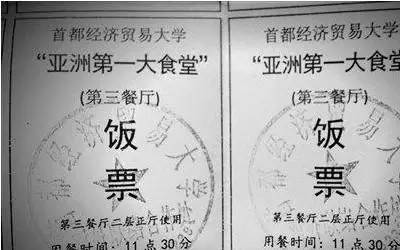 首都经济贸易大学
“亚洲第一大食堂”
(第三餐厅)
饭
票
第三餐厅二层正厅使用
用餐时间：11点30分
首都经济贸易大学
“亚洲第一大食堂
(第三餐厅)
饭
票
第三餐厅二层正厅使用
用餐时间：11点30分